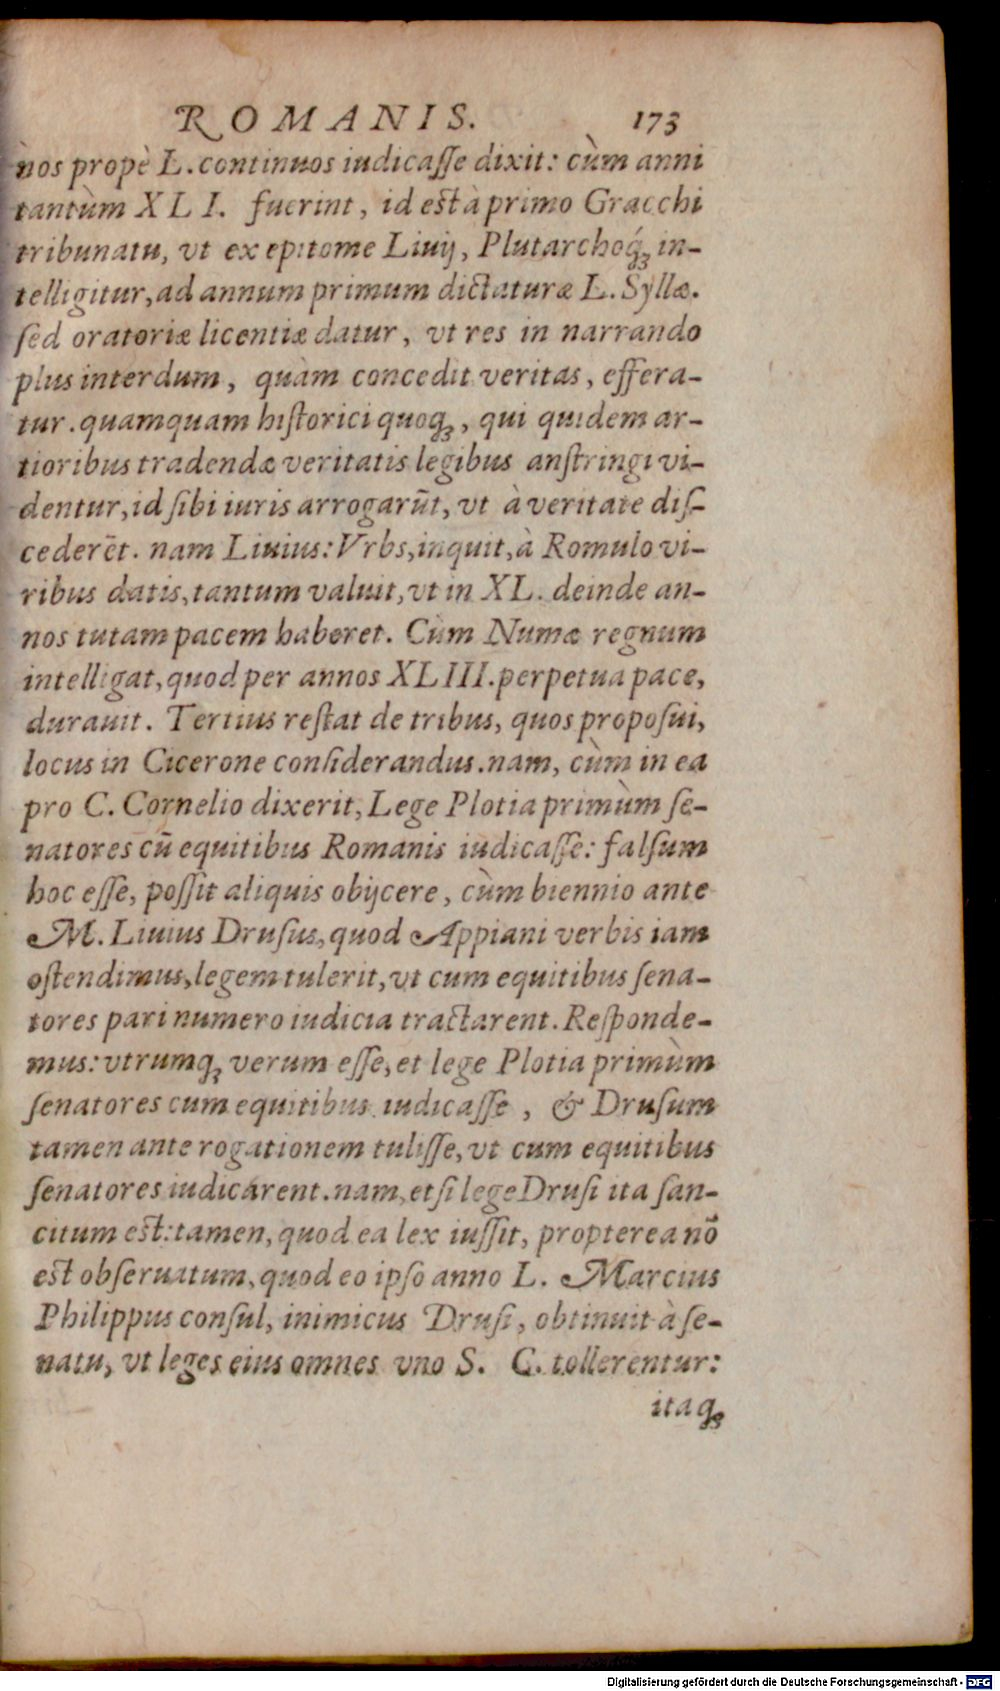 ROMANIS. 173
nos propè L. continuos iudicaſſe dixit: cùm anni
tantùm XLI. fuerint, id est à primo Gracchi
tribunatu, vt ex epitome Liuij, Plutarchoq́ꝫ in-
telligitur, ad annum primum dictaturæ L. Syllæ.
ſed oratoriæ licentiæ datur, vt res in narrando
plus interdum, quàm concedit veritas, effera-
tur. quamquam hiſtorici quoqꝫ, qui quidem ar-
tioribus tradendæ veritatis legibus anſtringi vi-
dentur, id ſibi iuris arrogarūt, vt à veritate diſ-
cederēt. nam Liuius: Vrbs, inquit, à Romulo vi-
ribus datis, tantum valuit, vt in XL. deinde an-
nos tutam pacem haberet. Cùm Numæ regnum
intelligat, quod per annos XLIII. perpetua pace,
durauit. Tertius restat de tribus, quos propoſui,
locus in Cicerone conſiderandus. nam, cùm in ea
pro C. Cornelio dixerit, Lege Plotia primùm ſe-
natores cū equitibus Romanis iudicaſſe: falſum
hoc eſſe, poſſit aliquis obijcere, cùm biennio ante
M. Liuius Druſus, quod Appiani verbis iam
oſtendimus, legem tulerit, vt cum equitibus ſena-
tores pari numero iudicia tractarent. Reſponde-
mus: vtrumqꝫ verum eſſe, et lege Plotia primùm
ſenatores cum equitibus iudicaſſe, & Druſum
tamen ante rogationem tuliſſe, vt cum equitibus
ſenatores iudicarent. nam, etſi lege Druſi ita ſan-
citum est: tamen, quod ea lex iuſſit, propterea nō
est obſeruatum, quod eo ipſo anno L. Marcius
Philippus conſul, inimicus Druſi, obtinuit à ſe-
natu, vt leges eius omnes vno S. C. tollerentur:
itaqꝫ
Digitalisierung gefördert durch die Deutsche Forschungsgemeinschaft - DFG